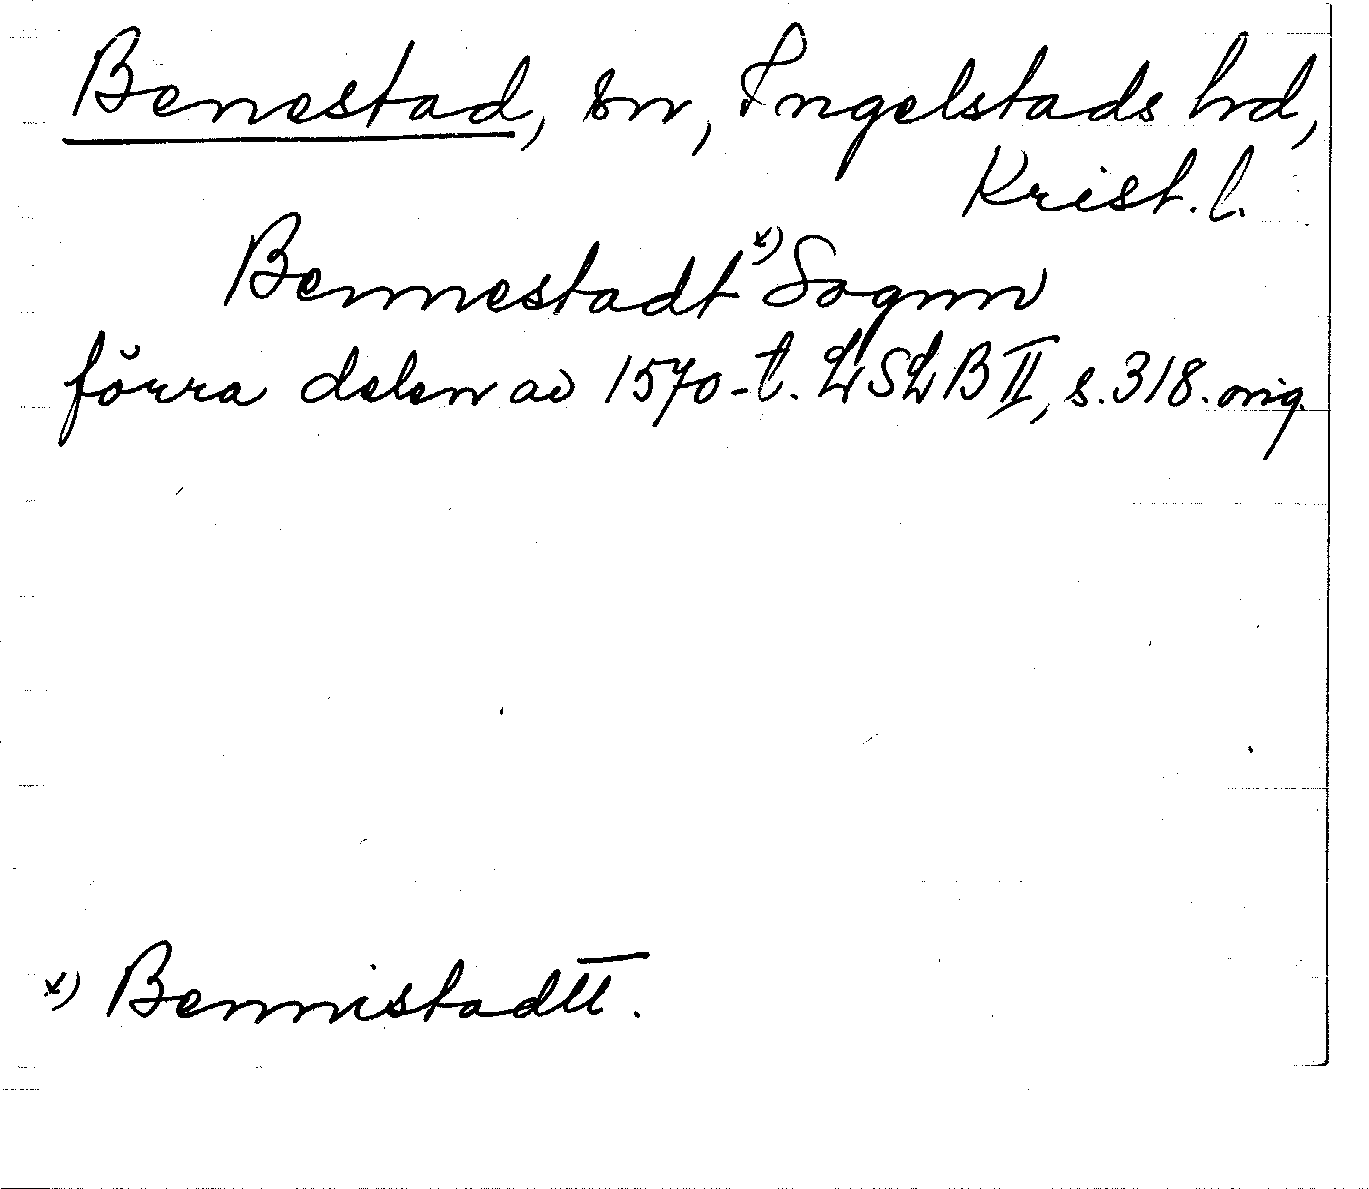 Benestad, sn, Ingelstads hrd,
Krist. l.
Bennestadt x) Sognn
förra delen av 1570-t. LSLB II, s. 318. orig.
x) Bennistadtt.